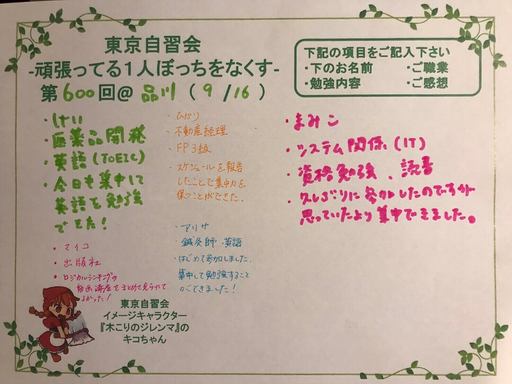 東京自習会
-頑張ってる1人ぼっちをなくす-
第600回@品川(9/16)
下記の項目をご記入下さい
・下のお名前 ・ご職業
・勉強内容 ・ご感想
・けい
・医薬品開発
・英語(TOEIC)
・今日も集中して
英語を勉強
できた!
・マイコ
・出版社
・ロジカルランキングの
まとめて
よかった!
・不動産経理
・FP3級
・スケジュールを報告
したことで集中力を
保つことができた。
・アリサ
・鍼灸師・英語
・はじめて参加しました。
集中して勉強すること
ができました!
・まみこ
・システム関係(IT)
・資格勉強、読書
・久しぶりに参加したのですが
思っていたより集中できました。
東京自習会
イメージキャラクター
『木こりのジレンマ』の
キコちゃん